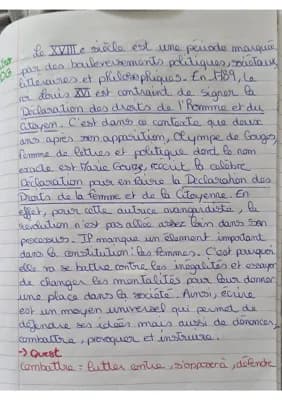 Le XVIIIe siècle est une période marquée
par des bouleversements politiques, sociétaux,
littéraires et philosophiques. En 1789, Le
roi Louis XVI est contraint de signer la
Déclaration des droits de l'Homme et du
Citoyen. C'est dans ce contexte que deux
ans après son apparition, Olympe de Gouges,
femme de lettres et politique dont le nom
exacte est Marie Gouze, réécrit la célèbre
Déclaration pour en faire la Déclaration des
Droits de la Femme et de la Citoyenne. En
effet, pour cette autrice avangardiste, la
révolution n'est pas allée assez loin dans son
processus. IP manque un élément important
dans la constitution: les femmes. C'est pourquoi
elle va se battre contre les inégalités et essayer
de changer les mentalités pour leur donner
une place dans la société. Ainsi, écrire
est un moyen universel qui permet de
défendre ses idées mais aussi de dénoncer,
combattre, provoquer et instruire.
→ Quest
combattre = lutter contre, s'opposer à, défendre